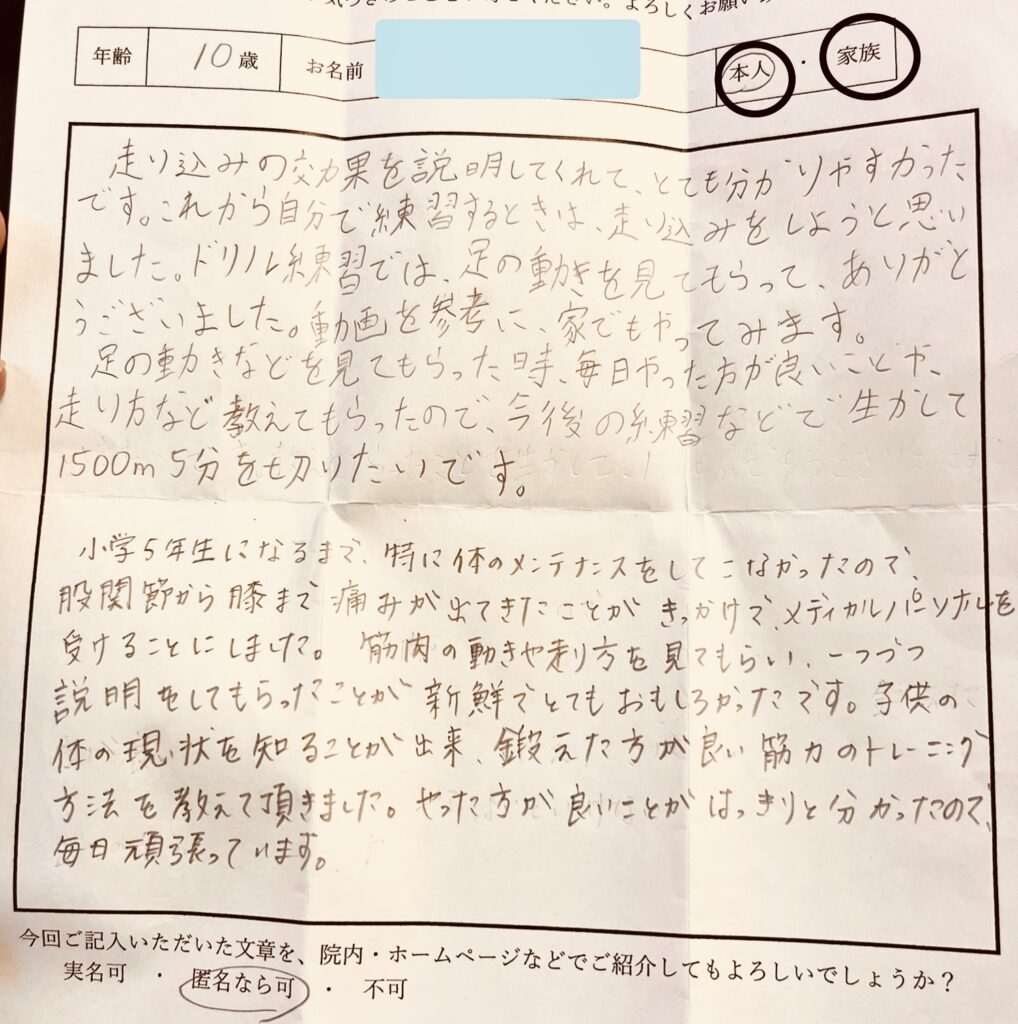 ください。よろしくお願い
年齢 10歳 お名前 本人・家族
走り込みの効果を説明してくれて、とても分かりやすかった
です。これから自分で練習するときは、走り込みをしようと思い
ました。ドリル練習では、足の動きを見てもらって、ありがと
うございました。動画を参考に、家でもやってみます。
足の動きなどを見てもらった時、毎日やった方が良いことや、
走り方など教えてもらったので、今後の練習などで生かして
1500m 5分を切りたいです。
小学5年生になるまで、特に体のメンテナンスをしてこなかったので、
股関節から膝まで痛みが出てきたことがきっかけで、メディカルパーソナルを
受けることにしました。筋肉の動きや走り方を見てもらい、一つづつ
説明をしてもらったことが新鮮でとてもおもしろかったです。子供の
体の現状を知ることが出来、鍛えた方が良い筋力のトレーニング
方法を教えて頂きました。やった方が良いことがはっきりと分かったので、
毎日頑張っています。
今回ご記入いただいた文章を、院内・ホームページなどでご紹介してもよろしいでしょうか？
実名可 ・ 匿名なら可 ・ 不可